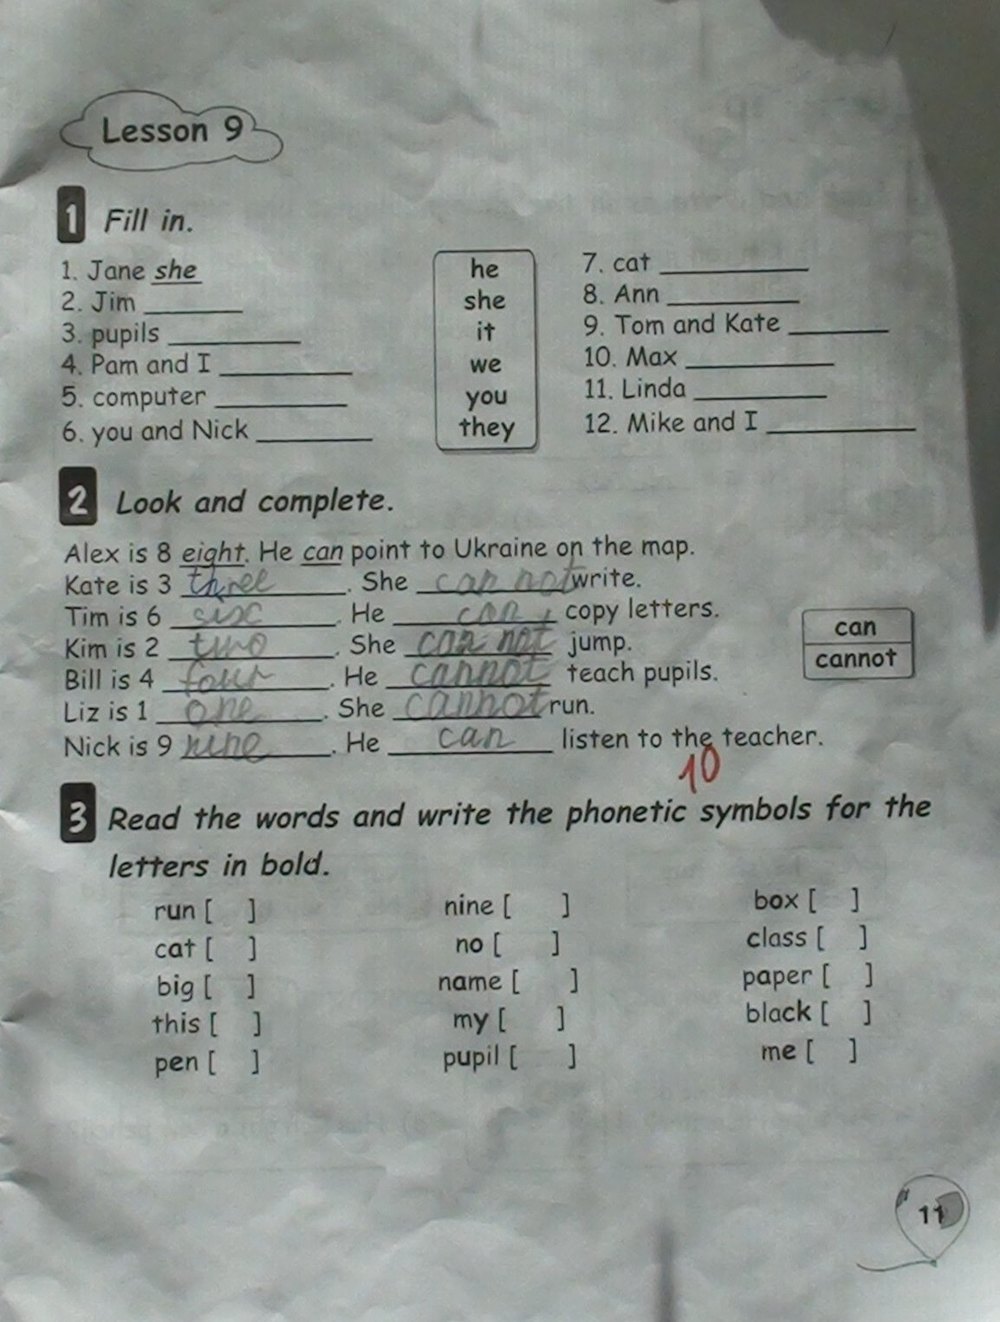 Lesson 9
1 Fill in.
1. Jane she
2. Jim ______
3. pupils ______
4. Pam and I ______
5. computer ______
6. you and Nick ______
he
she
it
we
you
they
7. cat ______
8. Ann ______
9. Tom and Kate ______
10. Max ______
11. Linda ______
12. Mike and I ______
2 Look and complete.
Alex is 8 eight. He can point to Ukraine on the map.
Kate is 3 three. She can not write.
Tim is 6 six. He can copy letters.
Kim is 2 two. She can not jump.
Bill is 4 four. He cannot teach pupils.
Liz is 1 one. She cannot run.
Nick is 9 nine. He can listen to the teacher.
can
cannot
10
3 Read the words and write the phonetic symbols for the
letters in bold.
run [ ]
cat [ ]
big [ ]
this [ ]
pen [ ]
nine [ ]
no [ ]
name [ ]
my [ ]
pupil [ ]
box [ ]
class [ ]
paper [ ]
black [ ]
me [ ]
11